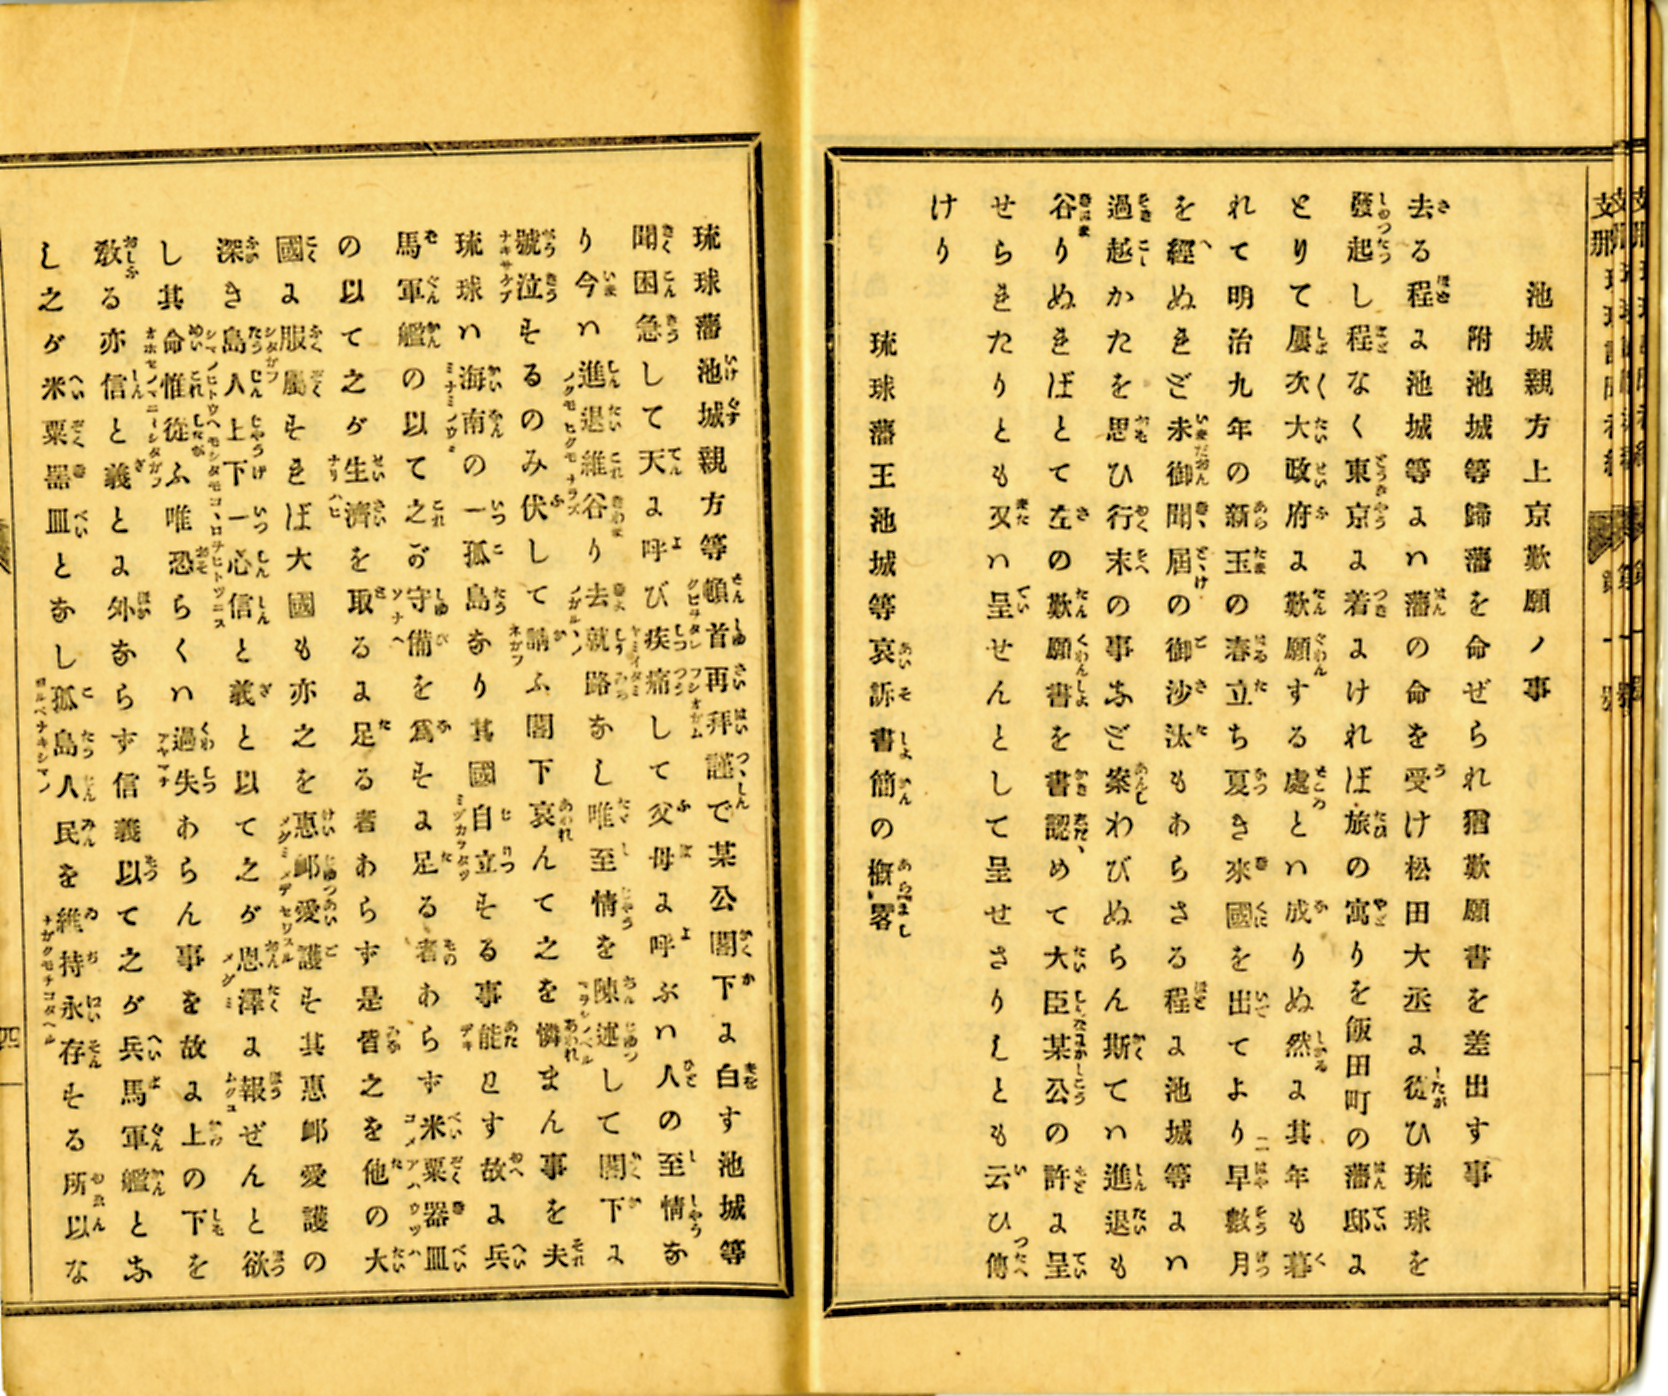 池城親方上京歎願ノ事
附池城等歸藩を命ぜられ猶歎願書を差出す事
去る程に池城等には藩の命を受け松田大丞に從ひ琉球を
發起し程なく東京に着にければ旅の寓りを飯田町の藩邸に
とりて屢次大政府に歎願する處とは成りぬ然に其年も暮
れて明治九年の新玉の春立ち夏き來國を出てより早數月
を經ぬきど未御聞屆の御沙汰もあらさる程に池城等には
過越かたを思ひ行末の事など案わびぬらん斯ては進退も
谷りぬきばとて左の歎願書を書認めて大臣某公の許に呈
せらきたりとも又は呈せんとして呈せさりしとも云ひ傳
けり
琉球藩王池城等哀訴書簡の概畧
琉球藩池城親方等頓首再拜謹で某公閣下に白す池城等
聞困急して天に呼び疾痛して父母に呼ぶは人の至情な
り今は進退維谷り去就路なし唯至情を陳述して閣下に
號泣するのみ伏して請ふ閣下哀んて之を憐まん事を夫
琉球は海南の一孤島なり其國自立する事能はす故に兵
馬軍艦の以て之が守備を爲すに足る者あらす米粟器皿
の以て之が生濟を取るに足る者あらす是皆之を他の大
國に服屬すきば大國も亦之を惠邮愛護す其惠邮愛護の
深き島人上下一心信と義と以て之が恩澤に報ぜんと欲
し其命惟從ふ唯恐らくは過失あらん事を故に上の下を
敎る亦信と義とに外ならす信義以て之が兵馬軍艦とな
し之が米粟器皿となし孤島人民を維持永存する所以な
支那
一號
四